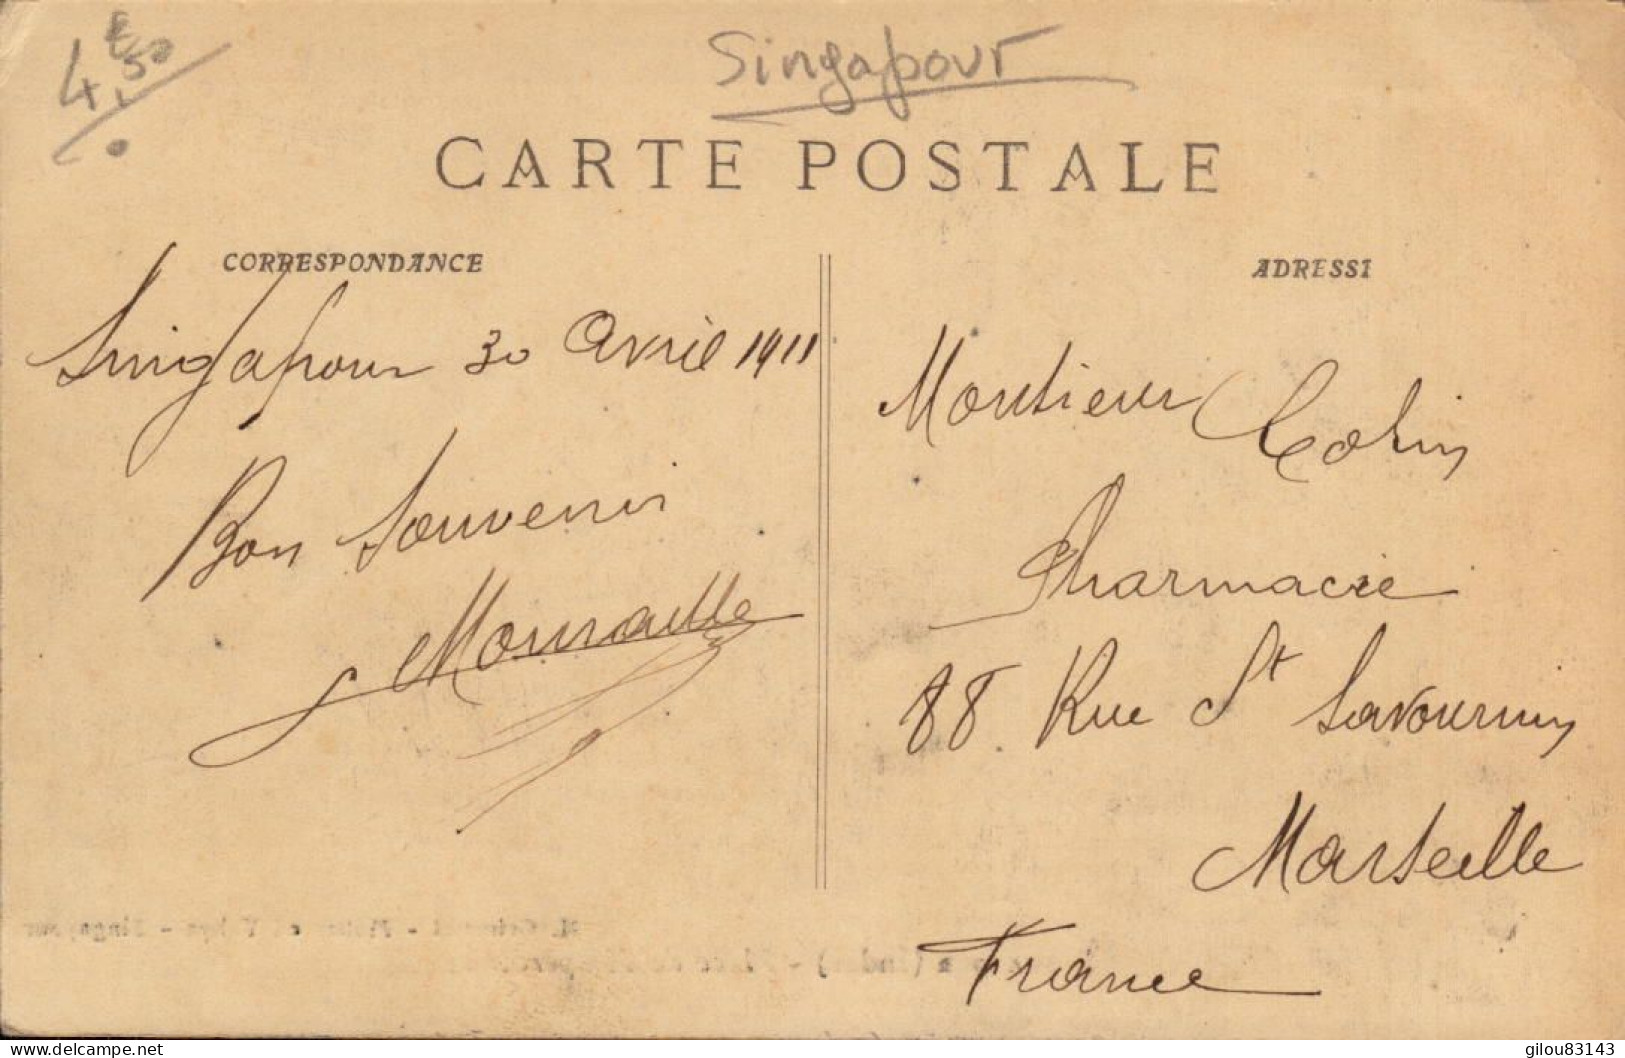 4,€50
Singapour
CARTE POSTALE
CORRESPONDANCE
ADRESSE
Singapour 30 Avril 1911
Bon Souvenir
Monsieur Colin
Pharmacie
88 Rue St Savournin
Marseille
France
delcampe.net
gilou83143